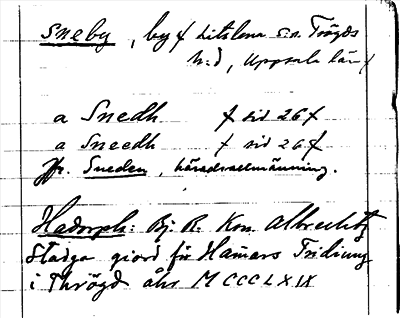 Sneby, by i Litslena s:n. Trögds
h:d, Uppsala län
a Snedh f sid 26 f
a Sneedh f sid 26 f
Jfr. Sneden, häradsallmänning.
Hadorph: Bj. R. Kon. Albrechtz
Stadga giord för Hamars Tridiung
i Thrögd åhr MCCCLXIX